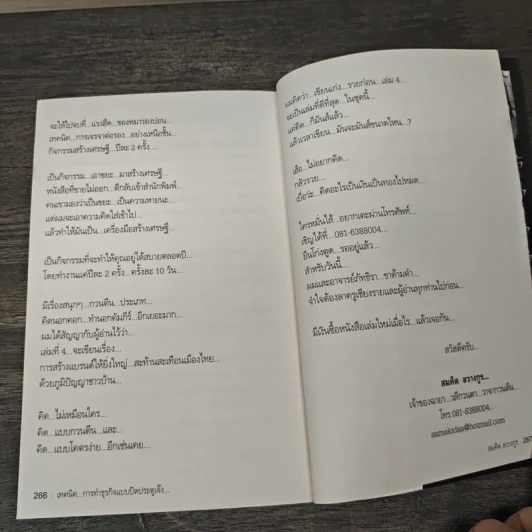 จะให้ไปจบที่...แวงฮืด...ของหมารองบ่อน...
เทคนิค...การเจรจาต่อรอง...อย่างเหนือชั้น...
กิจกรรมสร้างเศรษฐี...ปีละ 2 ครั้ง...
เป็นกิจกรรม...เอาขยะ...มาสร้างเศรษฐี...
หนังสือที่ขายไม่ออก...ตีกลับเข้าสำนักพิมพ์...
คนเขามองว่าเป็นขยะ...เป็นความหายนะ...
แต่ผมจะเอาความคิดใส่เข้าไป...
แล้วทำให้มันเป็น...เครื่องมือสร้างเศรษฐี...
เป็นกิจกรรมที่จะทำให้คุณอยู่ได้สบายตลอดปี...
โดยทำงานแค่ปีละ 2 ครั้ง...ครั้งละ 10 วัน...
มีเรื่องสนุกๆ...กวนตีน...ประเภท...
คิดนอกคอก...ทำนอกคัมภีร์...อีกเยอะมาก...
ผมได้สัญญากับผู้อ่านไว้ว่า...
เล่มที่ 4...จะเขียนเรื่อง...
การสร้างแบรนด์ให้ยิ่งใหญ่...สะท้านสะเทือนเมืองไทย...
ด้วยภูมิปัญญาชาวบ้าน...
คิด...ไม่เหมือนใคร...
คิด...แบบกวนตีน...และ...
คิด...แบบโคตรง่าย...อีกเช่นเคย...
266 เทคนิค...การทำธุรกิจแบบปิดประตูเจ๊ง...
ผมคิดว่า...เขียนเก่ง...รวยก่อน...เล่ม 4...
จะเป็นเล่มที่ดีที่สุด...ในชุดนี้...
แค่คิด...ก็มันส์แล้ว...
แล้วเวลาเขียน...มันจะมันส์ขนาดไหน...?
เฮ้อ...ไม่อยากคิด...
กลัวรวย...
เบื่อว่ะ...คิดอะไรเป็นเงินเป็นทองไปหมด...
ใครหมั่นไส้...อยากเตะผ่านโทรศัพท์...
เชิญได้ที่...081-6388004...
ยืนโก่งตูด...รออยู่แล้ว...
สำหรับวันนี้...
ผมและอาจารย์ภัทธิรา...ซาด้ามดำ...
จำใจต้องลาครูเชียงรายและผู้อ่านทุกท่านไปก่อน...
มีเงินซื้อหนังสือเล่มใหม่เมื่อไร...แล้วเจอกัน...
สวัสดีครับ...
สมคิด ลวางกูร...
เจ้าของฉายา...วลีกวนตา...วาจากวนตีน...
โทร.081-6388004...
@hotmail.com
สมคิด ลวางกูร 267